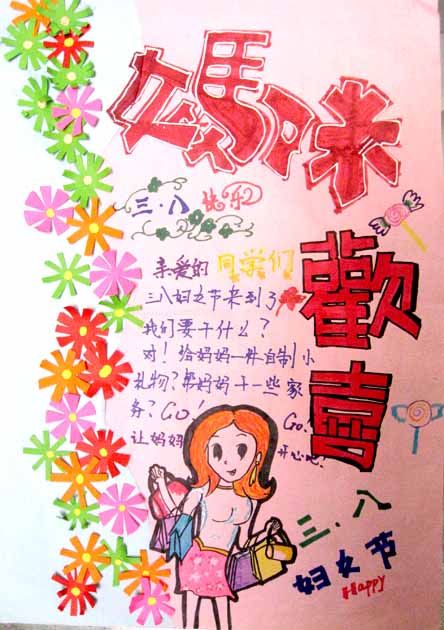 媽咪
三·八 快乐
歡喜
亲爱的 同学们
三八妇女节来到了
我们要干什么？
对！给妈妈一件自制小
礼物？帮妈妈干一些家
务？Go! Go!
让妈妈 开心吧！
三·八
妇女节
Happy